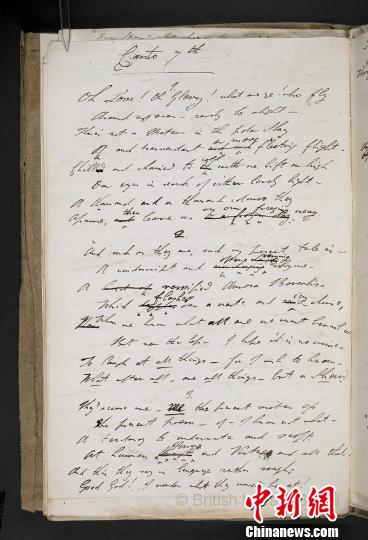 Canto 7th
1
Oh Love! Oh Glory! what are ye! who fly
Around us ever – rarely to alight –
There's not a Meteor in the polar Sky
Of such transcendent and more fleeting flight –
Chill and chained to cold earth we lift on high
Our eyes in search of either lovely light –
A thousand and a thousand colours they
Assume, then leave us on our freezing way
2
And such as they are, such my present tale is –
A nondescript and ever varying rhyme –
A versified Aurora Borealis –
Which flashes o'er a waste and icy clime,
When we know what all are we must bewail us,
But ne'er the less – I hope it is no crime –
To laugh at all things – for I wish to know
What after all, are all things – but a Show?
3
They accuse me – me the present writer of
The present poem – of – I know not what –
A tendency to underrate and scoff
At human power and Virtue and all that
And this they say in language rather rough,
Good God! I wonder what they would be at!
© British
中新网
Chinanews.com